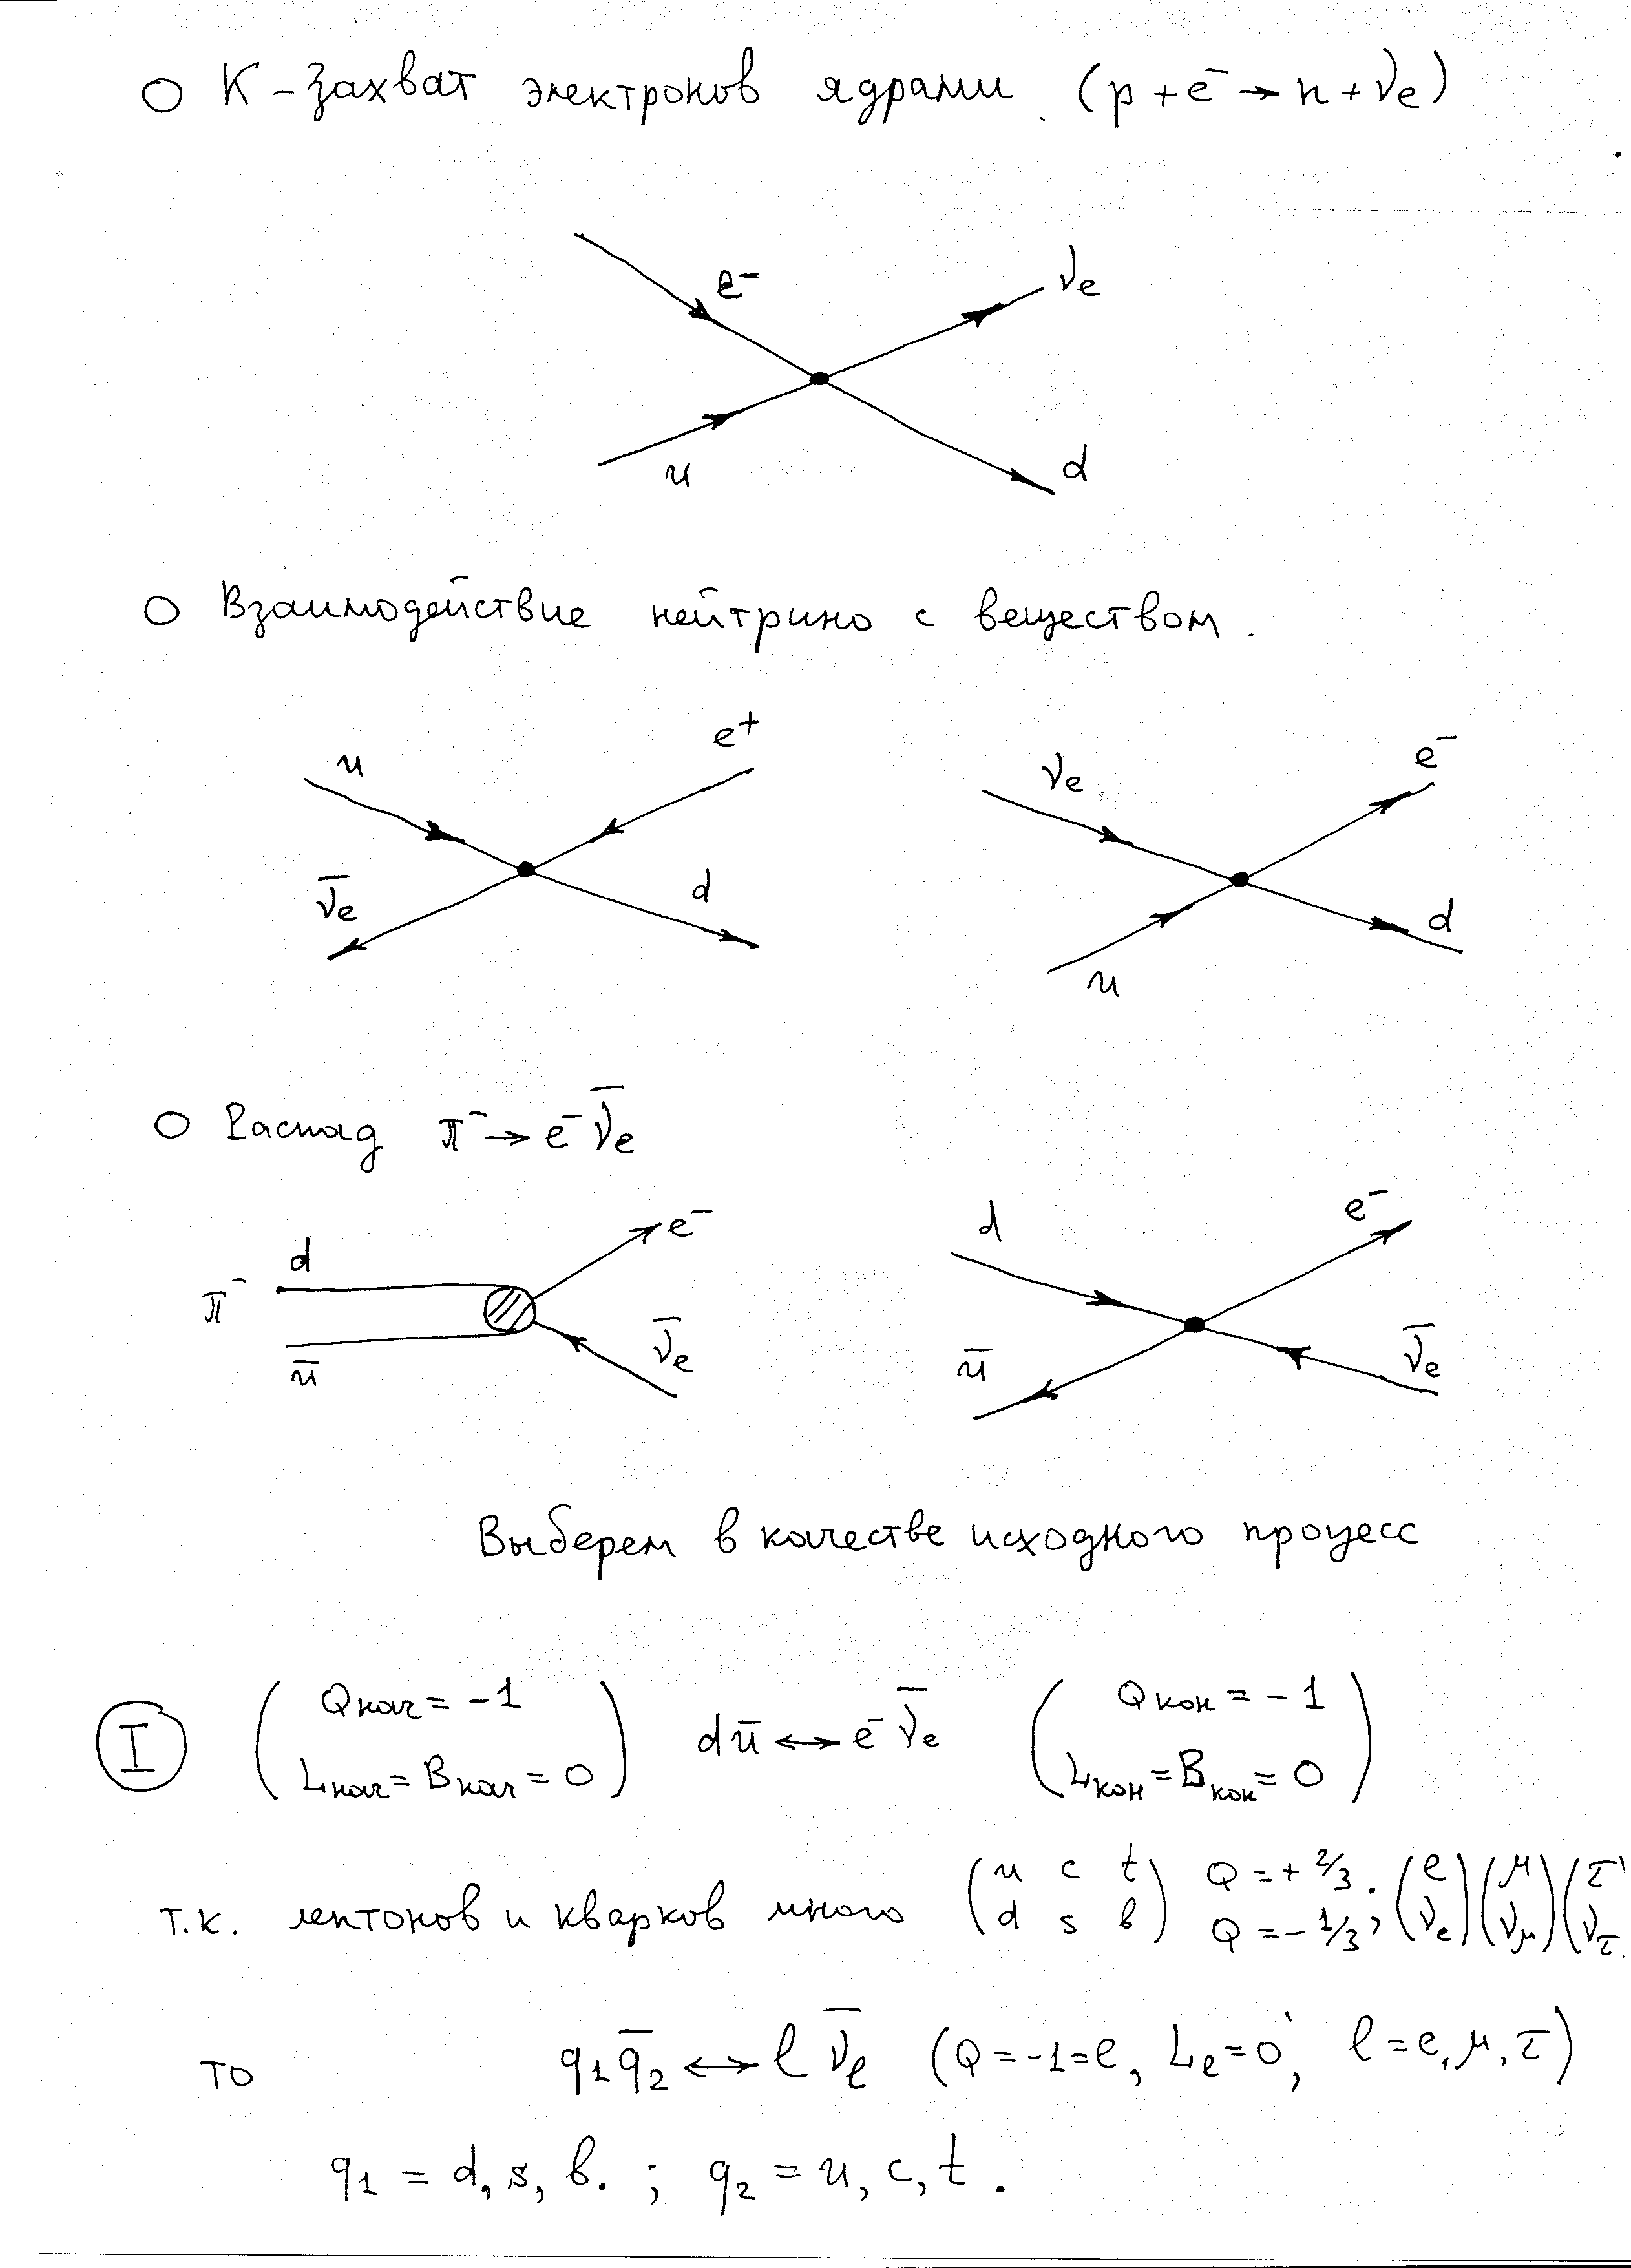 ○ K-захват электронов ядрами. (p + e⁻ → n + νe)
e⁻ νe
u d
○ Взаимодействие нейтрино с веществом.
u e⁺ νe e⁻
ν̄e d u d
○ Распад π⁻ → e⁻ ν̄e
π⁻ d ū e⁻ ν̄e
d e⁻ ū ν̄e
Выберем в качестве исходного процесс
I (Qнач = -1 Lнач = Bнач = 0) dū ↔ e⁻ ν̄e (Qкон = -1 Lкон = Bкон = 0)
т.к. лептонов и кварков много (u c t / d s b) Q = + 2/3. Q = - 1/3, (e νe) (μ νμ) (τ ντ
то q₁q̄₂ ↔ ℓ ν̄ℓ (Q = -1 = e, Le = 0, ℓ = e, μ, τ)
q₁ = d, s, b. ; q₂ = u, c, t.